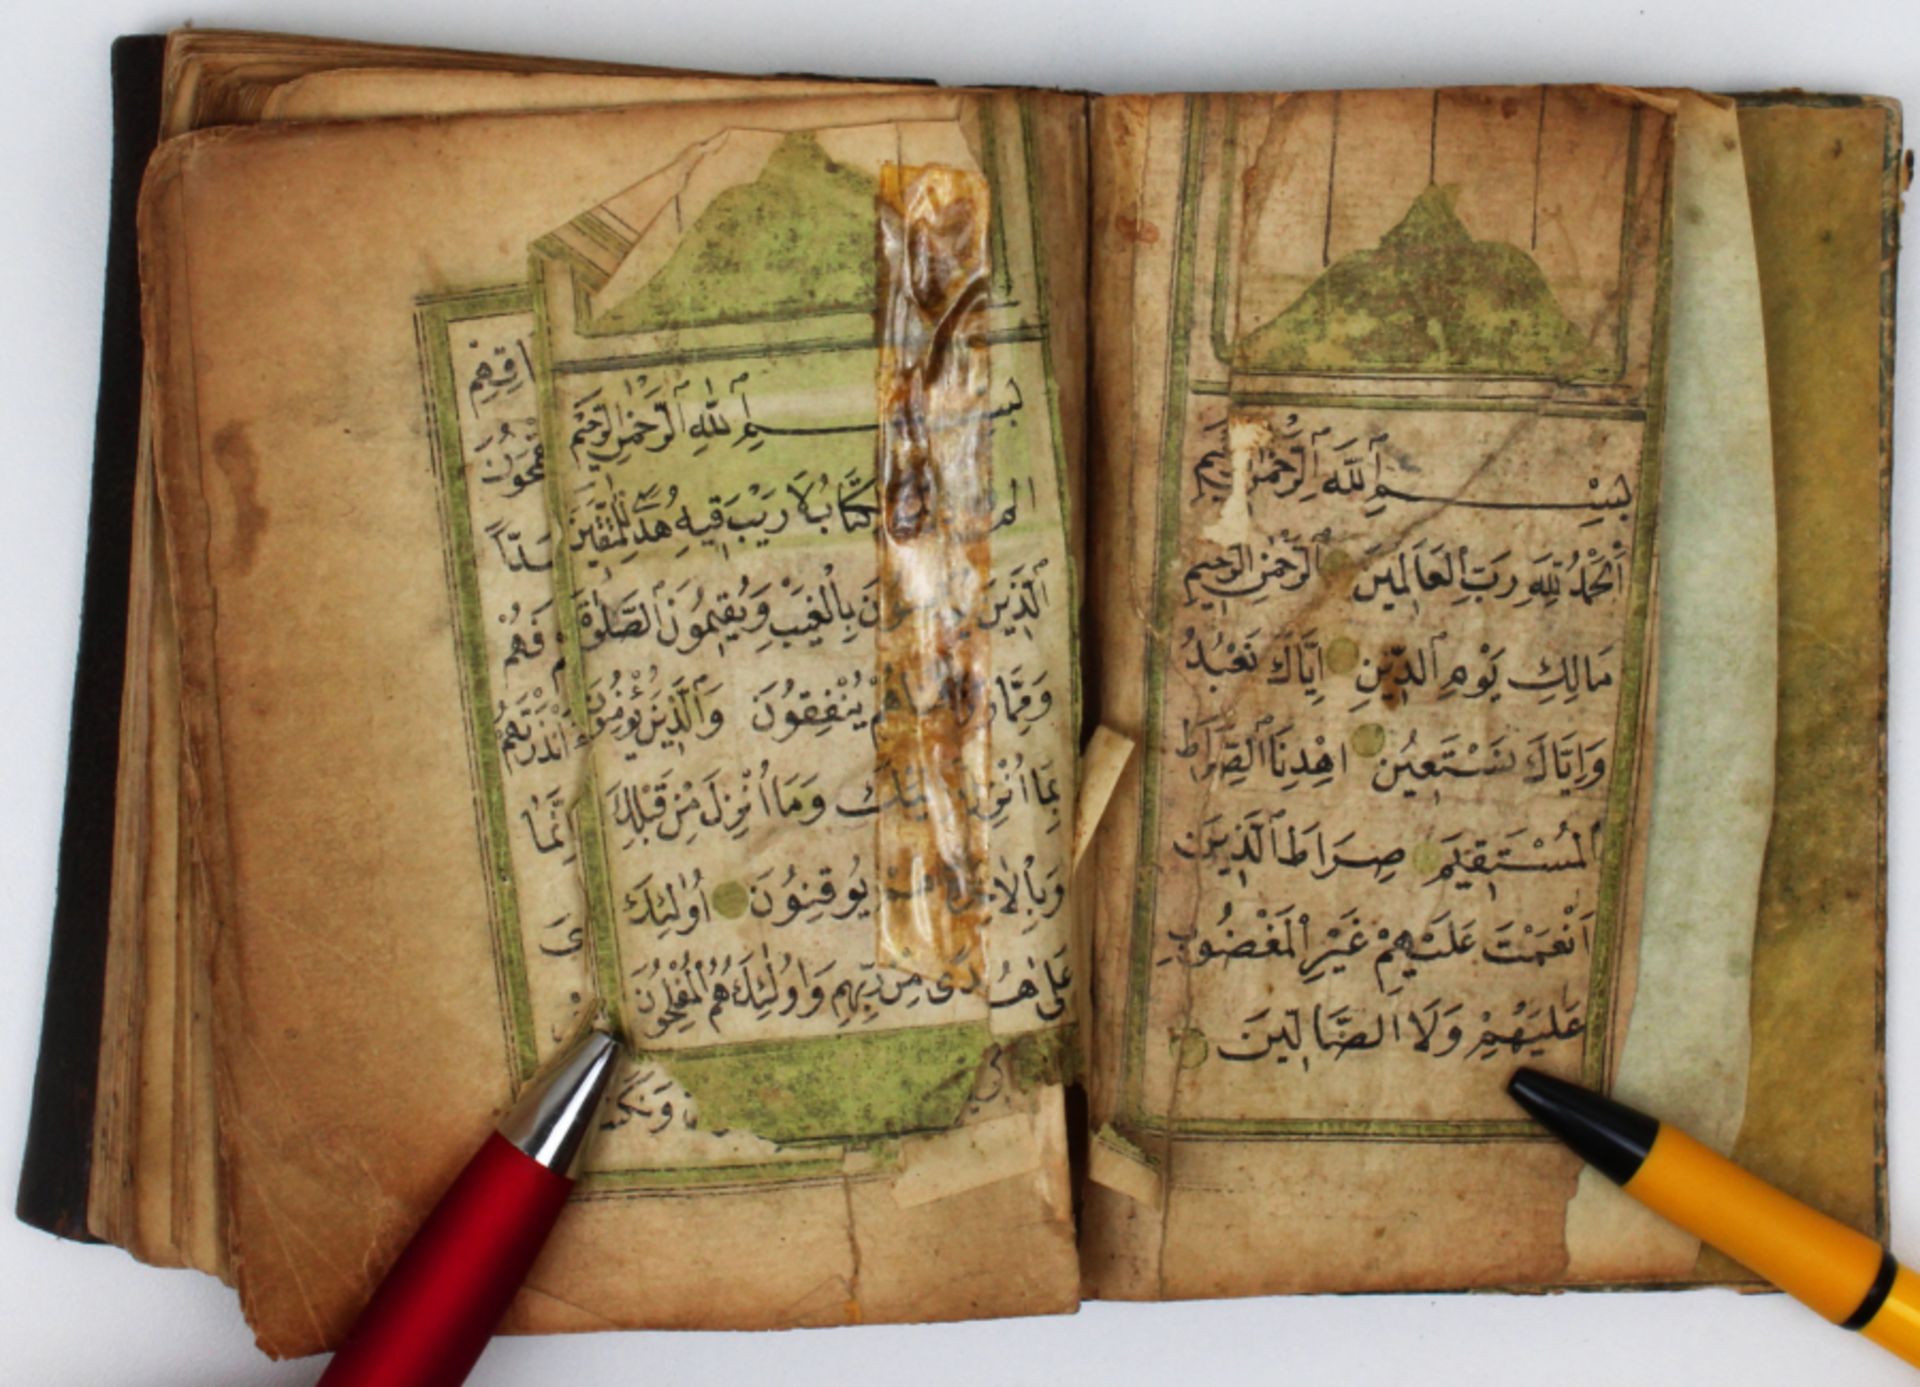 بِسْمِ ٱللَّهِ ٱلرَّحْمٰنِ
أَلْحَمْدُ لِلَّهِ رَبِّ ٱلْعَالَمِينَ ٱلرَّحْمٰنِ ٱلرَّحِيمِ
مَالِكِ يَوْمِ ٱلدِّينِ اِيَّاكَ نَعْبُدُ
وَاِيَّاكَ نَسْتَعِينُ اِهْدِنَا ٱلصِّرَاطَ
ٱلْمُسْتَقِيمَ صِرَاطَ ٱلَّذِينَ
اَنْعَمْتَ عَلَيْهِمْ غَيْرِ ٱلْمَغْضُوبِ
عَلَيْهِمْ وَلَا ٱلضَّالِّينَ
بِسْمِ ٱللَّهِ ٱلرَّحْمٰنِ ٱلرَّحِيمِ
لَا رَيْبَ فِيهِ هُدًى لِلْمُتَّقِينَ
ٱلَّذِينَ بِالْغَيْبِ وَيُقِيمُونَ ٱلصَّلٰوةَ
وَمِمَّا يُنْفِقُونَ وَٱلَّذِينَ يُؤْمِنُونَ
بِمَا اُنْزِلَ وَمَا اُنْزِلَ مِنْ قَبْلِكَ
يُوقِنُونَ اُولٰئِكَ
عَلٰى هُدًى مِنْ رَبِّهِمْ وَاُولٰئِكَ هُمُ ٱلْمُفْلِحُونَ
ءَاَنْذَرْتَهُمْ